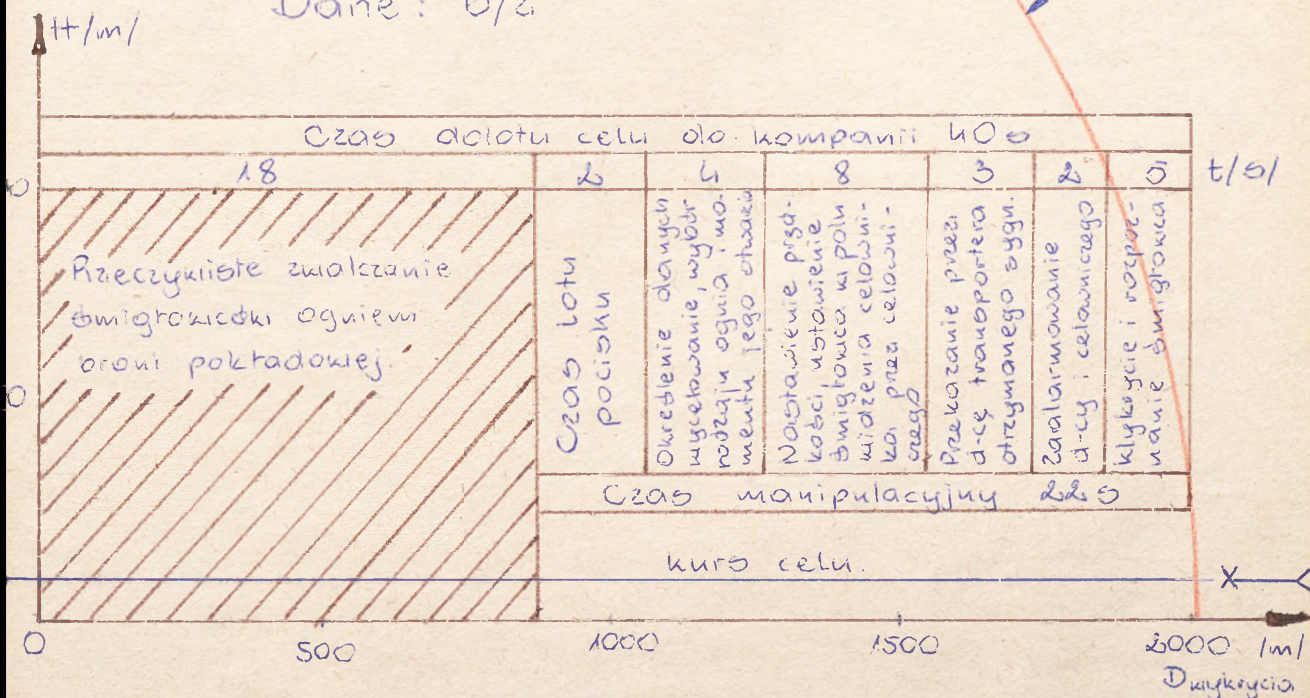 Dane :
H/m/
Czas dolotu celu do kompanii 40s
18 2 4 8 3 2 3 t/s/
Rzeczywiste zwalczanie
śmigłowców ogniem
broni pokładowej.
Czas lotu
pocisku
Określenie danych
wycelowanie, wybór
rodzaju ognia, mo-
mentu jego otwarcia
Nastawienie pręd-
kości, ustawienie
śmigłowca w polu
widzenia celowni-
ka przez celowni-
czego
Przekazanie przez
d-cę transportera
otrzymanego sygn.
Zaalarmowanie
d-cy i celowniczego
Wykrycie i rozpoz-
nanie śmigłowca
Czas manipulacyjny 22s
kurs celu.
0 500 1000 1500 2000 /m/
D wykrycia